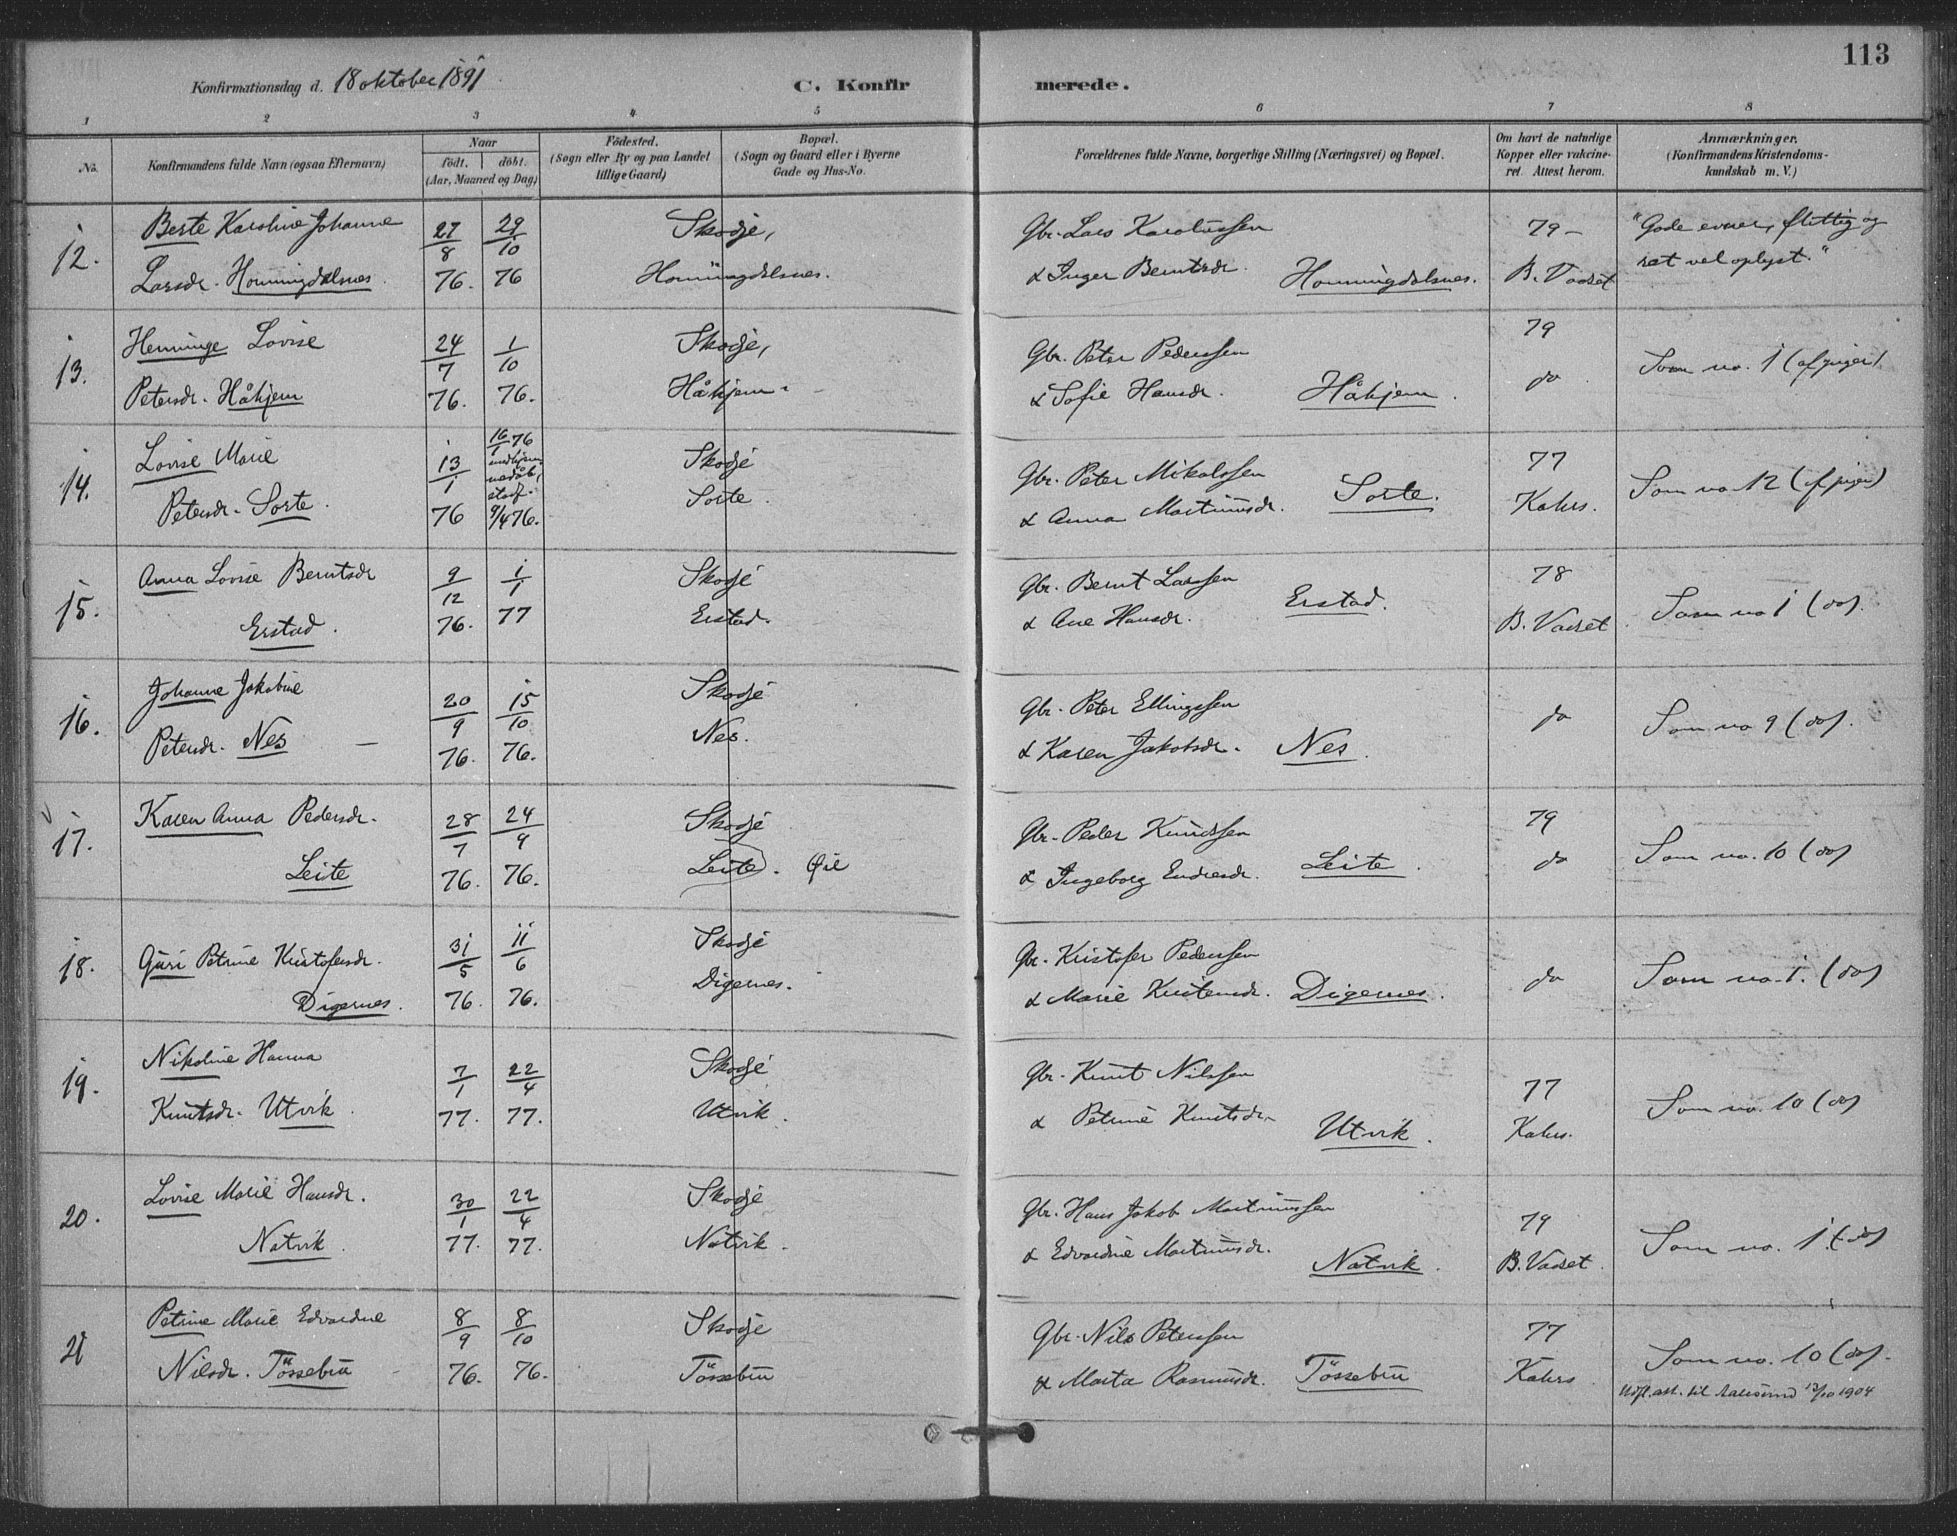 113
Konfirmationsdag d. 18 oktober 1891
C. Konfirmerede.
1 2 3 4 5 6 7 8
No.
Konfirmandens fulde Navn (ogsaa Efternavn)
Naar
født. døbt.
(Aar, Maaned og Dag)
Fødested.
(Sogn eller By og paa Landet
tillige Gaard)
Bopæl.
(Sogn og Gaard eller i Byerne
Gade og Hus-No.
Forældrenes fulde Navne, borgerlige Stilling (Næringsvei) og Bopæl.
Om havt de naturlige
Kopper eller vakcine-
ret. Attest herom.
Anmærkninger,
(Konfirmandens Kristendoms-
kundskab m. V.)
12. Berte Karoline Johanne 27/8 29/10 Skodje, Gbr. Lars Karolussen 79 - "Gode evner, flittig og
Larsdr. Honningdalsnes. 76. 76 Honningdalsnes. & Inger Berntsdr. Honningdalsnes. B. Vadset ret vel oplyst."
13. Henninge Lovise 24/7 1/10 Skodje, Gbr. Peter Pederssen 79 Som no. 1 (af piger)
Petersdr. Håhjem 76. 76. Håhjem. & Sofie Hansdr. Håhjem. do
14. Lovise Marie 13/1 16/1 76 Skodje Gbr. Peter Mikalssen 77 Som no. 12 (af piger)
hjemmedøb,
stadf.
Petersdr. Sorte. 76 9/4 76. Sorte. & Anna Martinusdr. Sorte. Kahrs.
15. Anna Lovise Berntsdr 9/12 1/1 Skodje Gbr. Bernt Larssen 78 Som no 1 (do).
Erstad. 76. 77 Erstad. & Ane Hansdr. Erstad. B. Vadset
16. Johanne Jakobine 20/9 15/10 Skodje Gbr. Peter Ellingssen do Som no 9 (do).
Petersdr. Nes - 76. 76. Nes. & Karen Jakobsdr. Nes.
17. Karen Anna Pedersdr. 28/7 24/9 Skodje Gbr. Peder Knudssen 79 Som no. 10 (do)
Leite 76. 76. Leite. Øie & Ingeborg Endresdr. Leite. do
18. Guri Petrine Kristofersdr. 31/5 11/6 Skodje Gbr. Kristofer Pederssen do Som no. 1. (do)
Digernes. 76. 76. Digernes. & Marie Kristensdr. Digernes.
19. Nikoline Hanna 7/1 22/4 Skodje Gbr. Knut Nilssen 77 Som no. 10 (do)
Knutsdr. Utvik. 77. 77. Utvik. & Petrine Knutsdr. Utvik. Kahrs.
20. Lovise Marie Hansdr. 30/1 22/4 Skodje Gbr. Hans Jakob Martinussen 79 Som no. 1. (do)
Natvik. 77. 77. Natvik. & Edvardine Martinusdr. Natvik. B. Vadset.
21 Petrine Marie Edvardine 8/9 8/10 Skodje Gbr. Nils Peterssen 77 Som no. 10 (do).
Nilsdr. Tössebru 76. 76. Tössebru & Marta Rasmusdr. Tössebru Kahrs. Udfl.att. til Aalesund 13/10 1904